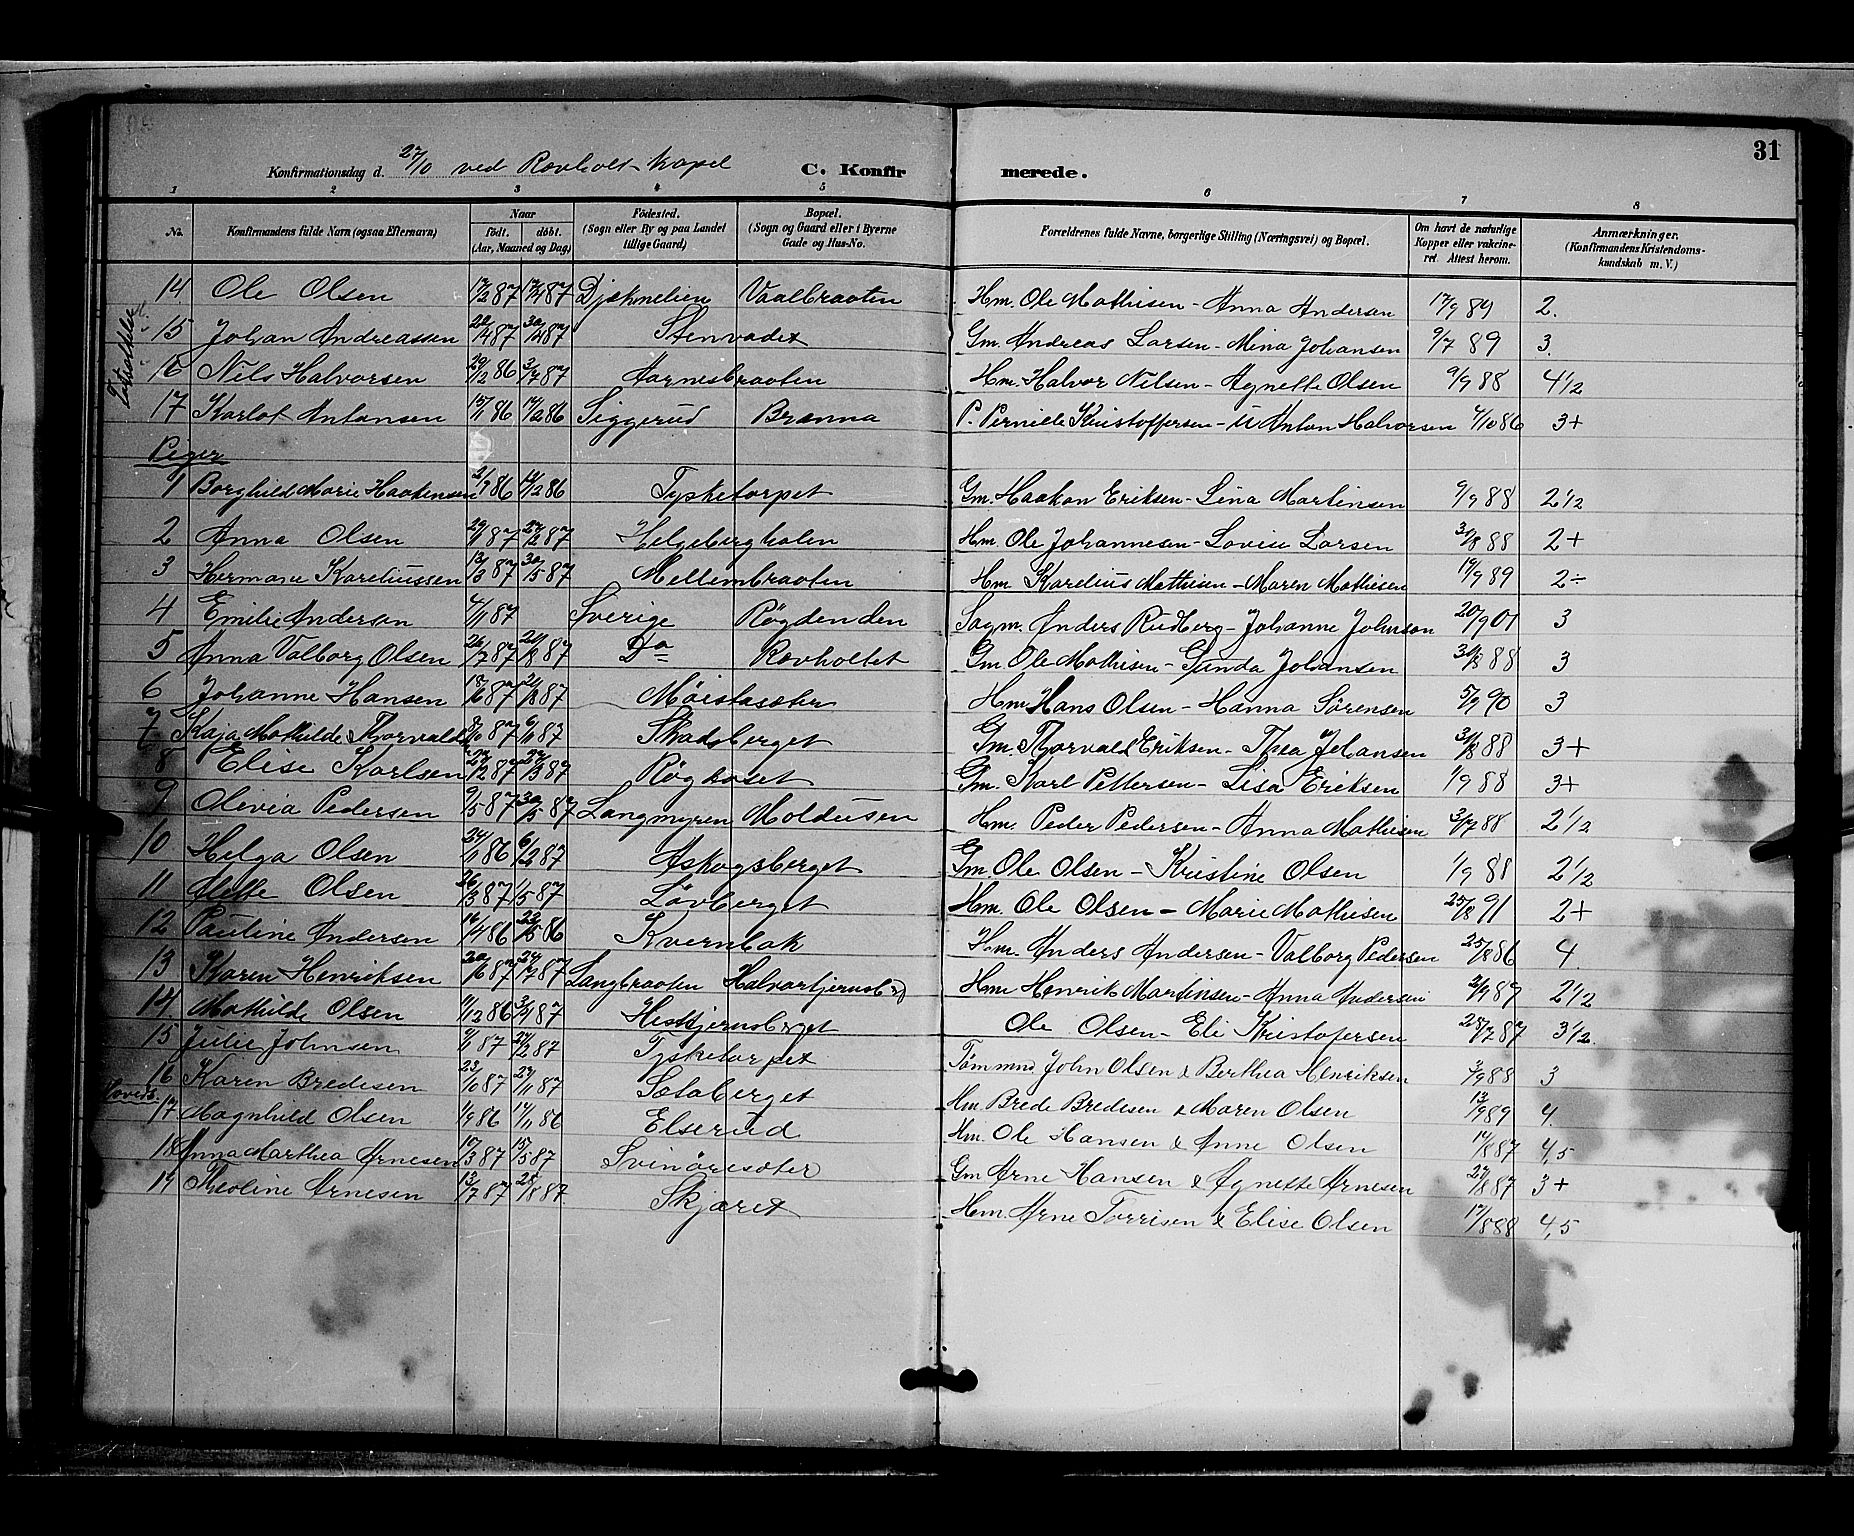 31
Konfirmationsdag d. 27/10 ved Rovholt Kapel C. Konfirmerede.
1 2 3 4 5 6 7 8
No. Konfirmandens fulde Navn (ogsaa Efternavn) Naar født. døbt. (Aar, Maaned og Dag) Fødested. (Sogn eller By og paa Landet tillige Gaard) Bopæl. (Sogn og Gaard eller i Byerne Gade og Hus-No.) Forældrenes fulde Navne, borgerlige Stilling (Næringsvei) og Bopæl. Om havt de naturlige Kopper eller vaccineret. Attest herom. Anmærkninger. (Konfirmandens Kristendomskundskab m. V.)
14 Ole Olsen 17/2 87 17/4 87 Vaalbraaten Hm. Ole Mathisen - Anna Andersen 17/9 89 2.
15 Johan Andreassen 20/4 87 Stenvadet Gm. Andreas Larsen - Mina Johansen 9/7 89 3.
16 Nils Halvorsen 29/12 86 3/7 87 Aarnesbraaten Hm. Halvor Nilsen - Agnette Olsen 9/9 88 4 1/2
17 Karlot Antonsen 15/1 86 14/2 86 Siggerud Brænna P. Pernille Kristoffersen - U Anton Halvorsen 4/10 86 3+
Piger
1 Borghild Marie Haakensen 21/9 86 19/12 86 Tysketorpet Gm. Haakon Eriksen - Lina Martinsen 9/9 88 2 1/2
2 Anna Olsen 29/1 87 27/2 87 Helgebergholen Hm. Ole Johannesen - Lovise Larsen 31/8 88 2+
3 Hermane Kareliussen 13/3 87 30/5 87 Mellembraaten Hm Karelius Mathisen - Maren Mathisen 19/9 89 2÷
4 Emilie Anderson 4/1 87 Sverige Røgdenden Sagm. Anders Rudberg - Johanne Johnson 20/9 01 3
5 Anna Valborg Olsen 26/7 87 21/8 87 Do Rovholtet Gm. Ole Mathisen - Gunda Johansen 31/8 88 3
6 Johanne Hansen 18/6 87 21/8 87 Møistasæter Hm Hans Olsen - Hanna Sørensen 5/9 90 3
7 Kaja Mathilde Thorvalds 8/10 87 6/11 87 Skadsberget Gm. Thorvald Eriksen - Thea Johansen 31/8 88 3+
8 Elise Karlsen 22/2 87 27/3 87 Røghuset Gm. Karl Pettersen - Lisa Eriksen 1/9 88 3+
9 Olivia Pedersen 9/5 87 30/5 87 Langmyren Moldusen Hm. Peder Pedersen - Anna Mathisen 3/7 88 2 1/2
10 Helga Olsen 24/11 86 6/2 87 Askogsberget Gm. Ole Olsen - Kristine Olsen 1/9 88 2 1/2
11 Mette Olsen 26/3 87 1/5 87 Løvberget Hm. Ole Olsen - Marie Mathisen 25/8 91 2+
12 Pauline Andersen 14/4 86 23/5 86 Kvernbak Hm. Anders Andersen - Valborg Pedersen 25/8 86 4
13 Karen Henriksen 20/6 87 24/7 87 Langbraaten Hm Henrik Martinsen - Anna Andersen 2/9 89 2 1/2
14. Mathilde Olsen 11/12 86 Hestkjernsberget Ole Olsen - Eli Kristofersen 25/7 87 3 1/2.
15 Julie Johnsen 87 27/2 87 Tysketorpet Tømmmd John Olsen & Berthea Henriksen 3/9 88 3
16 Karen Bredesen 23/10 87 27/11 87 Sætaberget Hm. Brede Bredesen & Maren Olsen 13/9 89 4.
17 Magnhild Olsen 1/9 86 14/11 86 Elserud Hm. Ole Hansen & Anne Olsen 17/8 87 4,5
18 Anna Marthea Arnesen 10/3 87 15/5 87 Svinøresæter Gm Arne Hansen & Agnette Arnesen 27/8 87 3+
19 Theoline Arnesen 13/7 87 28/8 87 Skjæret Hm. Arne Torrisen & Elise Olsen 17/8 88 4,5